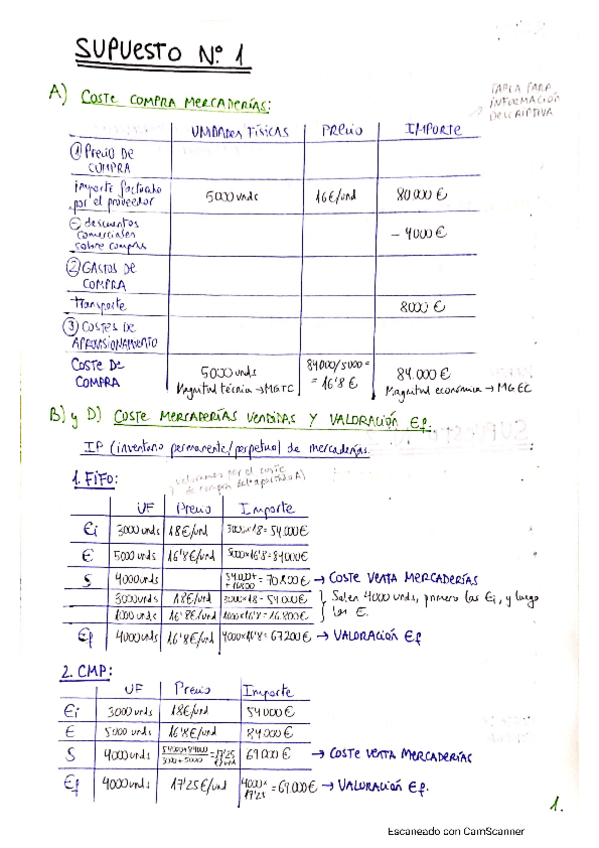 SUPUESTO Nº 1
A) COSTE COMPRA MERCADERÍAS:
TABLA PARA
INFORMACIÓN
DESCRIPTIVA
UNIDADES FÍSICAS PRECIO IMPORTE
① PRECIO DE
COMPRA
importe facturado
por el proveedor 5000 unds 16€/und 80000€
⊖ descuentos
comerciales
sobre compras - 4000€
② GASTOS DE
COMPRA
Transporte 8000€
③ COSTES DE
APROVISIONAMIENTO
COSTE DE
COMPRA 5000 unds 84000/5000 =
= 16'8€ 84.000€
Magnitud técnica → MGTC Magnitud económica → MGEC
B) y D) COSTE MERCADERÍAS VENDIDAS Y VALORACIÓN Ef.
IP (inventario permanente/perpetuo) de mercaderías.
1. FIFO:
valoramos por el coste
de compra del apartado A)
UF Precio Importe
Ei 3000 unds 18€/und 3000x18 = 54.000€
E 5000 unds 16'8€/und 5000x16'8 = 84000€
S 4000 unds 54.000+
16.800 = 70.800€ → COSTE VENTA MERCADERÍAS
3000 unds 18€/und 3000x18 = 54.000€ Salen 4000 unds, primero las Ei, y luego
1000 unds 16'8€/und 1000x16'8 = 16.800€ las E.
Ef 4000 unds 16'8€/und 4000x16'8 = 67200€ → VALORACIÓN Ef
2. CMP:
UF Precio Importe
Ei 3000 unds 18€/und 54000€
E 5000 unds 16'8€/und 84000€
S 4000 unds 54000+84000
3000+5000 = 17'25
€/und 69000€ → COSTE VENTA MERCADERÍAS
Ef 4000 unds 17'25€/und 4000x
17'25 = 69.000€ → VALORACIÓN Ef.
1.
Escaneado con CamScanner